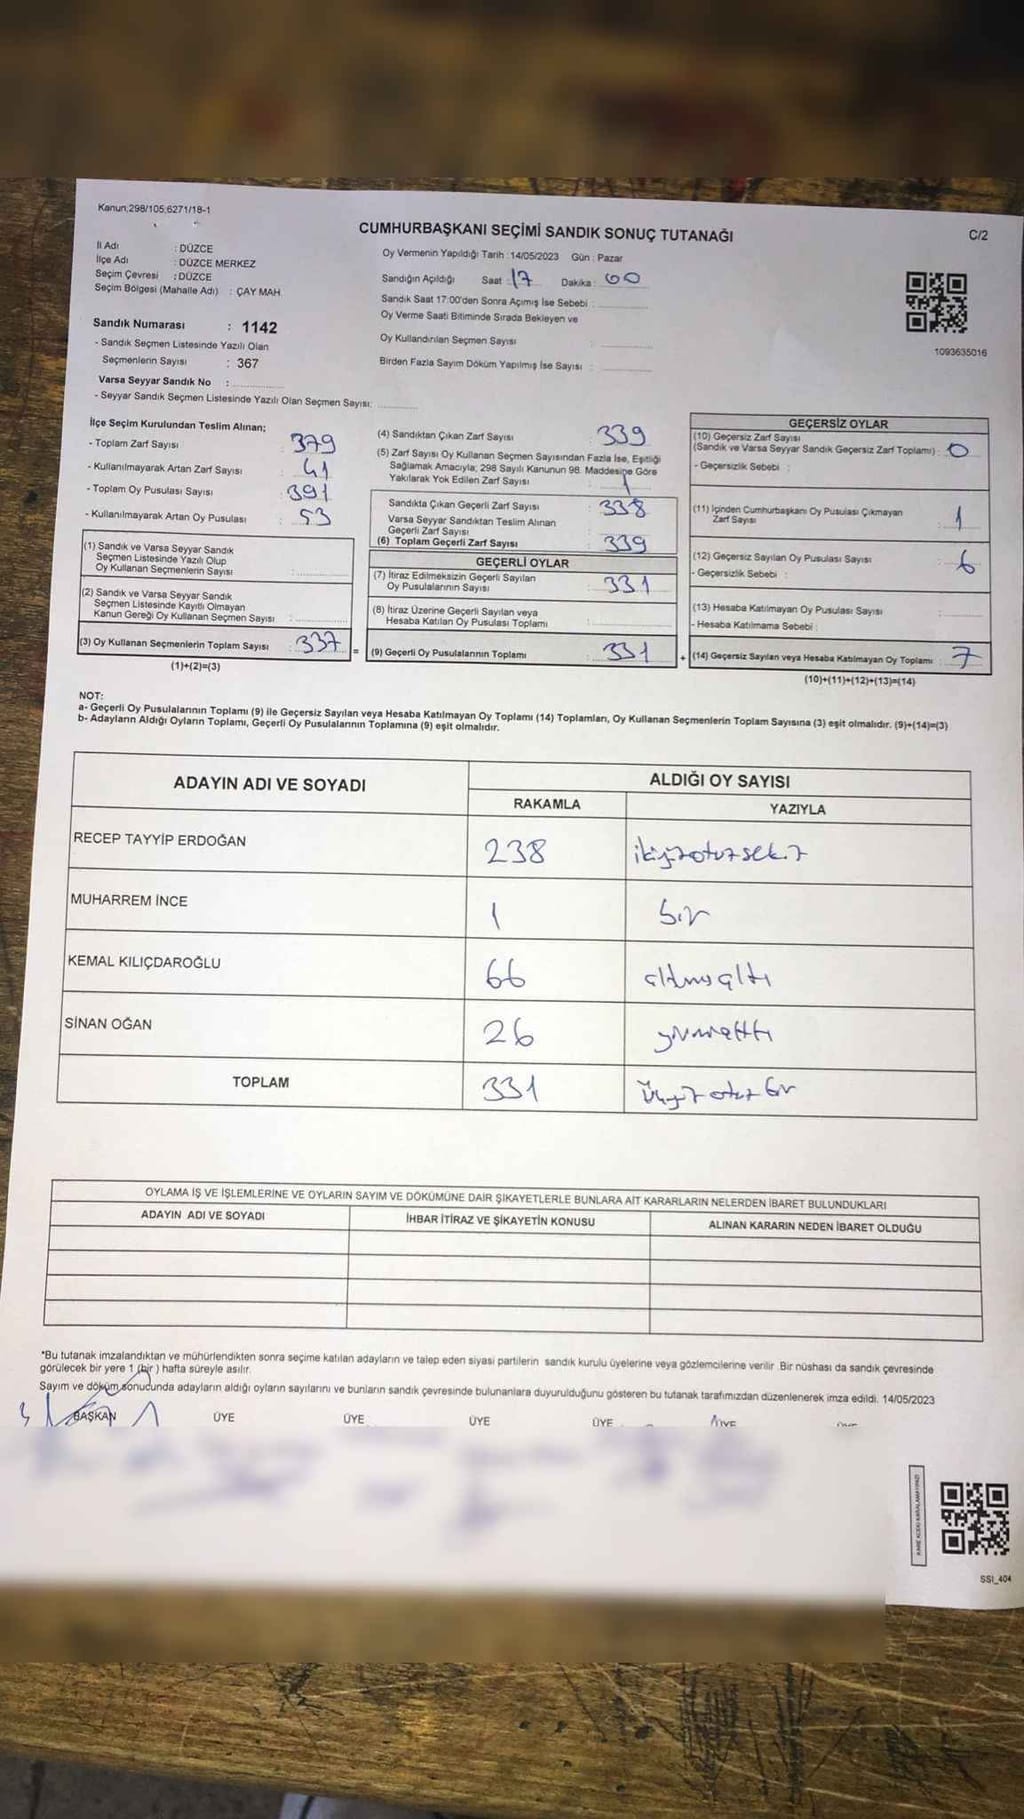 Kanun;298/105;6271/18-1
CUMHURBAŞKANI SEÇİMİ SANDIK SONUÇ TUTANAĞI
C/2
İl Adı : DÜZCE
İlçe Adı : DÜZCE MERKEZ
Seçim Çevresi : DÜZCE
Seçim Bölgesi (Mahalle Adı) : ÇAY MAH.
Oy Vermenin Yapıldığı Tarih : 14/05/2023 Gün : Pazar
Sandığın Açıldığı Saat : 17 Dakika : 00
Sandık Saat 17:00'den Sonra Açımış İse Sebebi :
Oy Verme Saati Bitiminde Sırada Bekleyen ve
Oy Kullandırılan Seçmen Sayısı :
Birden Fazla Sayım Döküm Yapılmış İse Sayısı :
1093635016
Sandık Numarası : 1142
- Sandık Seçmen Listesinde Yazılı Olan
Seçmenlerin Sayısı : 367
Varsa Seyyar Sandık No :
- Seyyar Sandık Seçmen Listesinde Yazılı Olan Seçmen Sayısı:
İlçe Seçim Kurulundan Teslim Alınan;
- Toplam Zarf Sayısı : 379
- Kullanılmayarak Artan Zarf Sayısı : 41
- Toplam Oy Pusulası Sayısı : 391
- Kullanılmayarak Artan Oy Pusulası : 53
(1) Sandık ve Varsa Seyyar Sandık
Seçmen Listesinde Yazılı Olup
Oy Kullanan Seçmenlerin Sayısı :
(2) Sandık ve Varsa Seyyar Sandık
Seçmen Listesinde Kayıtlı Olmayan
Kanun Gereği Oy Kullanan Seçmen Sayısı :
(3) Oy Kullanan Seçmenlerin Toplam Sayısı : 337 =
(1)+(2)=(3)
(4) Sandıktan Çıkan Zarf Sayısı : 339
(5) Zarf Sayısı Oy Kullanan Seçmen Sayısından Fazla İse, Eşitliği
Sağlamak Amacıyla; 298 Sayılı Kanunun 98. Maddesine Göre
Yakılarak Yok Edilen Zarf Sayısı : 1
Sandıkta Çıkan Geçerli Zarf Sayısı : 338
Varsa Seyyar Sandıktan Teslim Alınan
Geçerli Zarf Sayısı :
(6) Toplam Geçerli Zarf Sayısı : 339
GEÇERLİ OYLAR
(7) İtiraz Edilmeksizin Geçerli Sayılan
Oy Pusulalarının Sayısı : 331
(8) İtiraz Üzerine Geçerli Sayılan veya
Hesaba Katılan Oy Pusulası Toplamı :
(9) Geçerli Oy Pusulalarının Toplamı : 331 +
GEÇERSİZ OYLAR
(10) Geçersiz Zarf Sayısı
(Sandık ve Varsa Seyyar Sandık Geçersiz Zarf Toplamı) : 0
- Geçersizlik Sebebi :
(11) İçinden Cumhurbaşkanı Oy Pusulası Çıkmayan
Zarf Sayısı : 1
(12) Geçersiz Sayılan Oy Pusulası Sayısı : 6
- Geçersizlik Sebebi :
(13) Hesaba Katılmayan Oy Pusulası Sayısı :
- Hesaba Katılmama Sebebi :
(14) Geçersiz Sayılan veya Hesaba Katılmayan Oy Toplamı : 7
(10)+(11)+(12)+(13)=(14)
NOT:
a- Geçerli Oy Pusulalarının Toplamı (9) ile Geçersiz Sayılan veya Hesaba Katılmayan Oy Toplamı (14) Toplamları, Oy Kullanan Seçmenlerin Toplam Sayısına (3) eşit olmalıdır. (9)+(14)=(3)
b- Adayların Aldığı Oyların Toplamı, Geçerli Oy Pusulalarının Toplamına (9) eşit olmalıdır.
ADAYIN ADI VE SOYADI
ALDIĞI OY SAYISI
RAKAMLA YAZIYLA
RECEP TAYYİP ERDOĞAN 238 ikiyüzotuzsekiz
MUHARREM İNCE 1 bir
KEMAL KILIÇDAROĞLU 66 altmışaltı
SİNAN OĞAN 26 yirmialtı
TOPLAM 331 Üçyüz otuz bir
OYLAMA İŞ VE İŞLEMLERİNE VE OYLARIN SAYIM VE DÖKÜMÜNE DAİR ŞİKAYETLERLE BUNLARA AİT KARARLARIN NELERDEN İBARET BULUNDUKLARI
ADAYIN ADI VE SOYADI İHBAR İTİRAZ VE ŞİKAYETİN KONUSU ALINAN KARARIN NEDEN İBARET OLDUĞU
*Bu tutanak imzalandıktan ve mühürlendikten sonra seçime katılan adayların ve talep eden siyasi partilerin sandık kurulu üyelerine veya gözlemcilerine verilir. Bir nüshası da sandık çevresinde
görülecek bir yere 1 (bir) hafta süreyle asılır.
Sayım ve döküm sonucunda adayların aldığı oyların sayılarını ve bunların sandık çevresinde bulunanlara duyurulduğunu gösteren bu tutanak tarafımızdan düzenlenerek imza edildi. 14/05/2023
BAŞKAN ÜYE ÜYE ÜYE ÜYE ÜYE
SSI_404